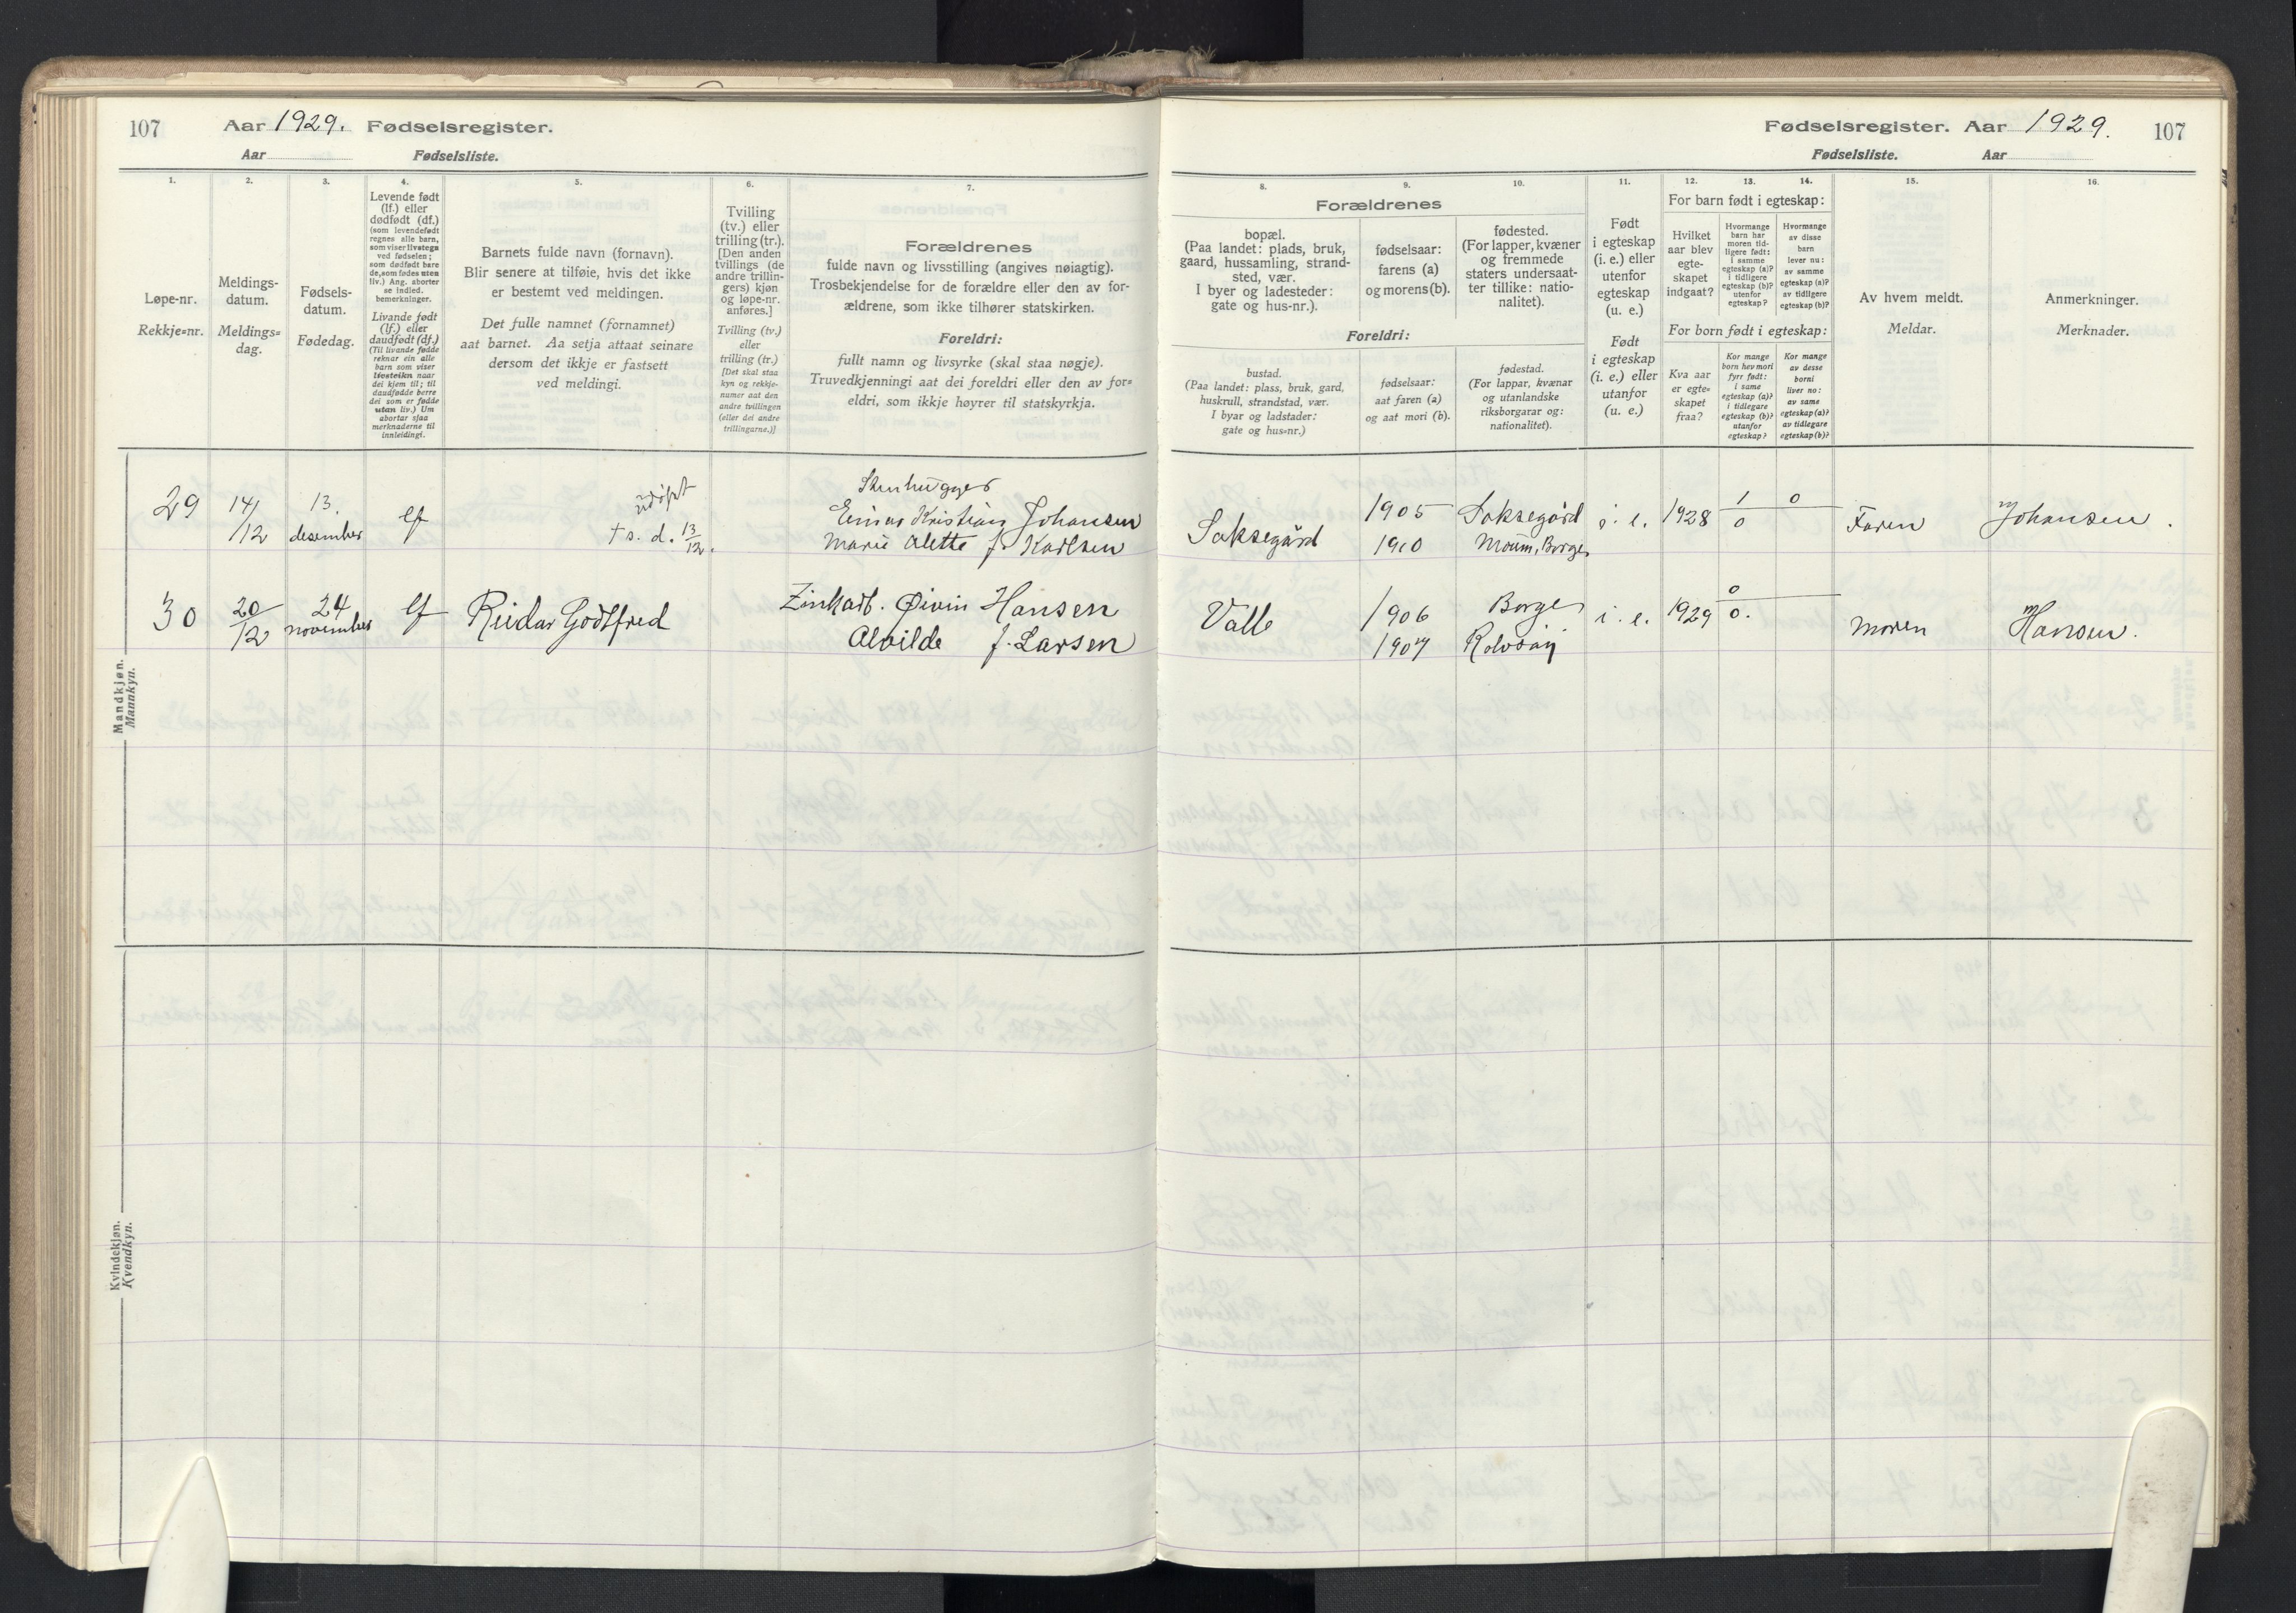 107 Aar 1929. Fødselsregister.
Aar Fødselsliste.
1. 2. 3. 4. 5. 6. 7.
Løpe-nr.
Rekkje=nr.
Meldings-
datum.
Meldings=
dag.
Fødsels-
datum.
Fødedag.
Levende født
(lf.) eller
dødfødt (df.)
(som levendefødt
regnes alle barn,
som viser livstegn
ved fødselen;
som dødfødt bare
de, som fødes uten
liv.) Ang. aborter
se indled.
bemerkninger.
Livande født
(lf.) eller
daudfødt (df.)
(Til livande fødde
reknar ein alle
barn som viser
livsteikn naar
dei kjem til; til
daudfødde berre
dei som er fødde
utan liv.) Um
abortar sjaa
merknaderne til
innleidingi.
Barnets fulde navn (fornavn).
Blir senere at tilføie, hvis det ikke
er bestemt ved meldingen.
Det fulle namnet (fornamnet)
aat barnet. Aa setja attaat seinare
dersom det ikkje er fastsett
ved meldingi.
Tvilling
(tv.) eller
trilling (tr.).
[Den anden
tvillings (de
andre trillin-
gers) kjøn
og løpe-nr.
anføres.]
Tvilling (tv.)
eller
trilling (tr.)
[Det skal staa
kyn og rekkje-
numer aat den
andre tvillingen
(eller dei andre
trillingarne.)]
Forældrenes
fulde navn og livsstilling (angives nøiagtig).
Trosbekjendelse for de forældre eller den av for-
ældrene, som ikke tilhører statskirken.
Foreldri:
fullt namn og livsyrke (skal staa nøgje).
Truvedkjenningi aat dei foreldri eller den av for=
eldri, som ikkje høyrer til statskyrkja.
Mandkjøn.
Mannkyn.
29 14/12 13. desember lf
udøpt
† s. d. 13/12.
Stenhugger
Einar Kristian Johansen
Marie Alette f. Karlsen
30 20/12 24 november lf Reidar Godtfred
Zinkarb. Øivin Hansen
Alvilde f. Larsen
Kvindekjøn.
Kvendkyn.
Fødselsregister. Aar 1929. 107
Fødselsliste. Aar
8. 9. 10. 11. 12. 13. 14. 15. 16.
Forældrenes
bopæl.
(Paa landet: plads, bruk,
gaard, hussamling, strand-
sted, vær.
I byer og ladesteder:
gate og hus-nr.).
fødselsaar:
farens (a)
og morens (b).
fødested.
(For lapper, kvæner
og fremmede
staters undersaat-
ter tillike: natio-
nalitet).
Foreldri:
bustad.
(Paa landet: plass, bruk, gard,
huskrull, strandstad, vær.
I byar og ladstader:
gate og hus=nr.)
fødselsaar:
aat faren (a)
og aat mori (b).
fødestad.
(For lappar, kvænar
og utanlandske
riksborgarar og:
nationalitet).
Født
i egteskap
(i. e.) eller
utenfor
egteskap
(u. e.)
Født
i egteskap
(i. e.) eller
utanfor
egteskap
(u. e.)
For barn født i egteskap:
Hvilket
aar blev
egte-
skapet
indgaat?
Hvormange
barn har
moren tid-
ligere født:
i samme
egteskap (a)?
i tidligere
egteskap (b)?
utenfor
egteskap?
Hvormange
av disse
barn
lever nu:
av samme
egteskap (a)?
av tidligere
egteskap (b)?
For born født i egteskap:
Kva aar
er egte=
skapet
fraa?
Kor mange
born hev mori
fyrr født:
i same
egteskap (a)?
i tidlegare
egteskap (b)?
utanfor
egteskap?
Kor mange
av desse
borni
liver no:
av same
egteskap (a)?
av tidlegare
egteskap (b)?
Av hvem meldt.
Meldar.
Anmerkninger.
Merknader.
Saksegård 1905 Saksegård i. e. 1928 1 0 Faren Johansen.
1910 Moum, Borge 0
Valle 1906 Borge i. e. 1929 0 Moren Hansen.
1907 Rolvsøy 0.